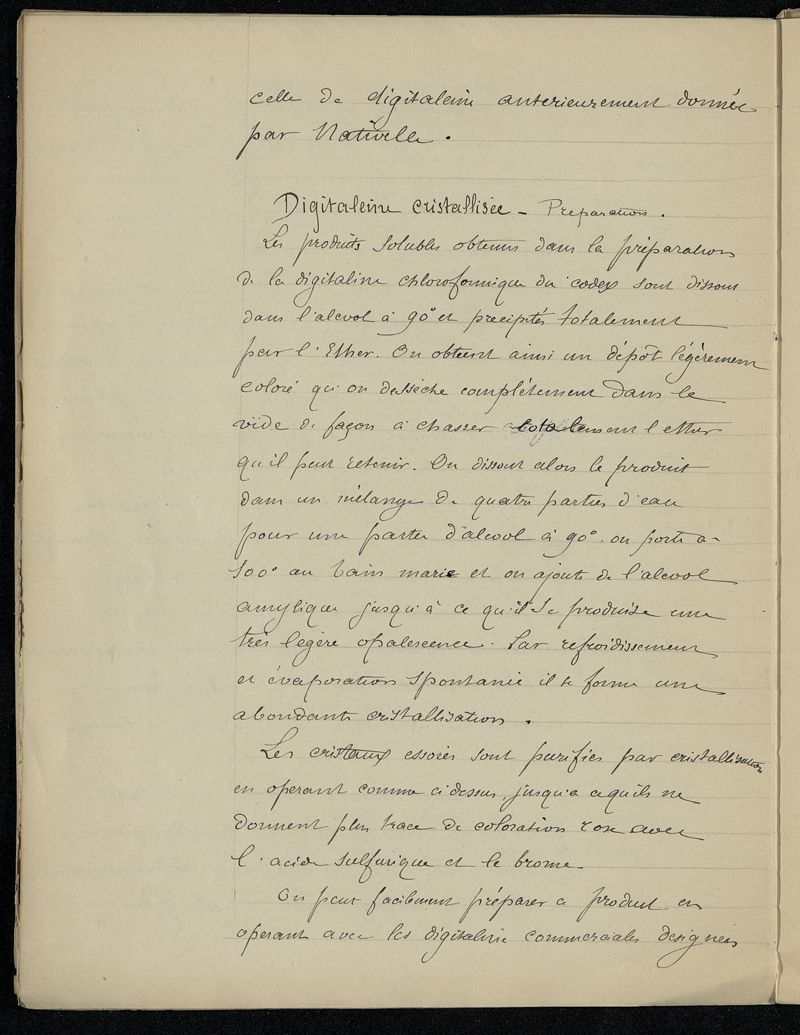 celle de digitaleine anterieurement donnée
par Nativelle.
Digitaleine cristallisée - Preparation.
Les produits solubles obtenus dans la préparation
de la digitaline chloroformique du codex sont dissous
dans l'alcool à 90° et precipités totalement
par l'Ether. On obtient ainsi un dépôt légèrement
coloré qu'on dessèche complétement dans le
vide de façon à chasser totalement l'ether
qu'il peut retenir. On dissout alors le produit
dans un mélange de quatre parties d'eau
pour une partie d'alcool à 90°, on porte a
100° au bain marie et on ajoute de l'alcool
amylique jusqu'à ce qu'il se produise une
très légère opalescence. Par refroidissement
et évaporation spontanée il se forme une
abondante cristallisation.
Les cristaux essorés sont purifiés par cristallisation
en operant comme ci dessus, jusqu'a ce qu'ils ne
donnent plus trace de coloration rose avec
l'acide sulfurique et le brome.
On peut facilement préparer ce produit en
operant avec les digitaline commerciales designées